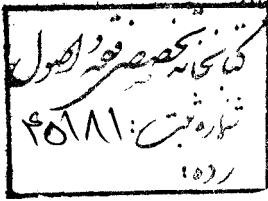 کتابخانه تخصصی فقه و اصول
شماره ثبت: ۴۵۱۸۱
رده: